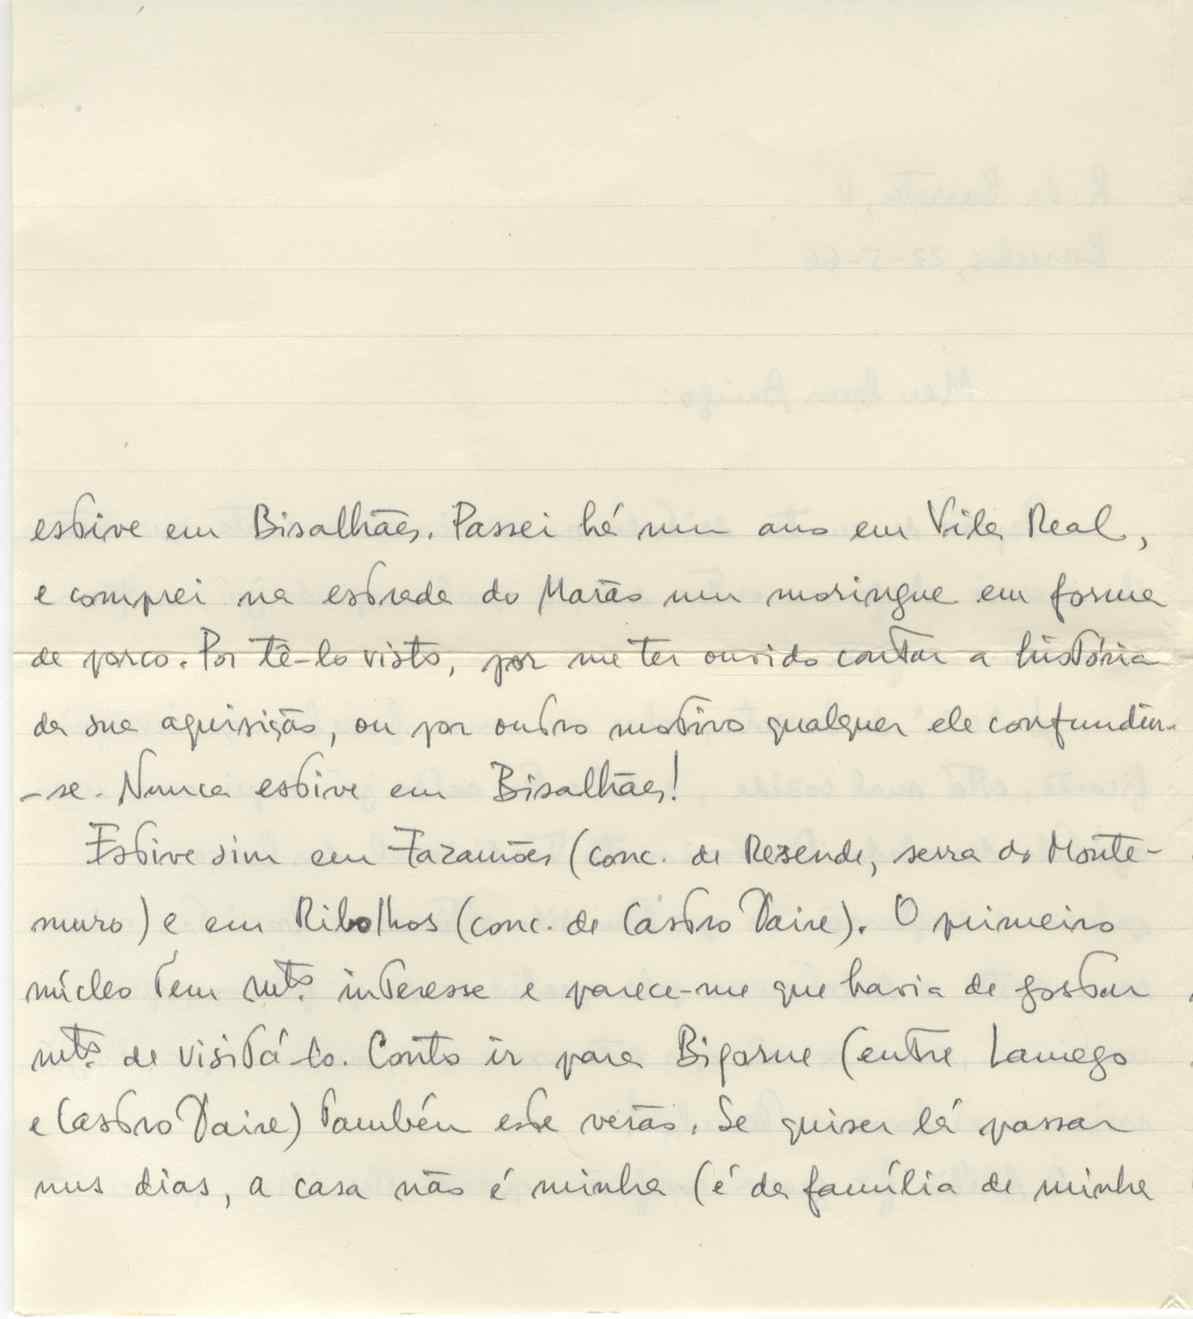 estive em Bisalhães. Passei há um ano em Vila Real,
e comprei na estrada do Marão um moringue em forma
de porco. Por tê-lo visto, por me ter ouvido contar a história
da sua aquisição, ou por outro motivo qualquer ele confundiu-
-se. Nunca estive em Bisalhães!
Estive sim em Fazamões (conc. de Rezende, serra do Monte-
muro) e em Ribolhos (conc. de Castro Daire). O primeiro
núcleo tem mtº. interesse e parece-me que havia de gostar
mtº. de visitá-lo. Conto ir para Bigorne (entre Lamego
e Castro Daire) também este verão. Se quiser lá passar
uns dias, a casa não é minha (é da família de minha